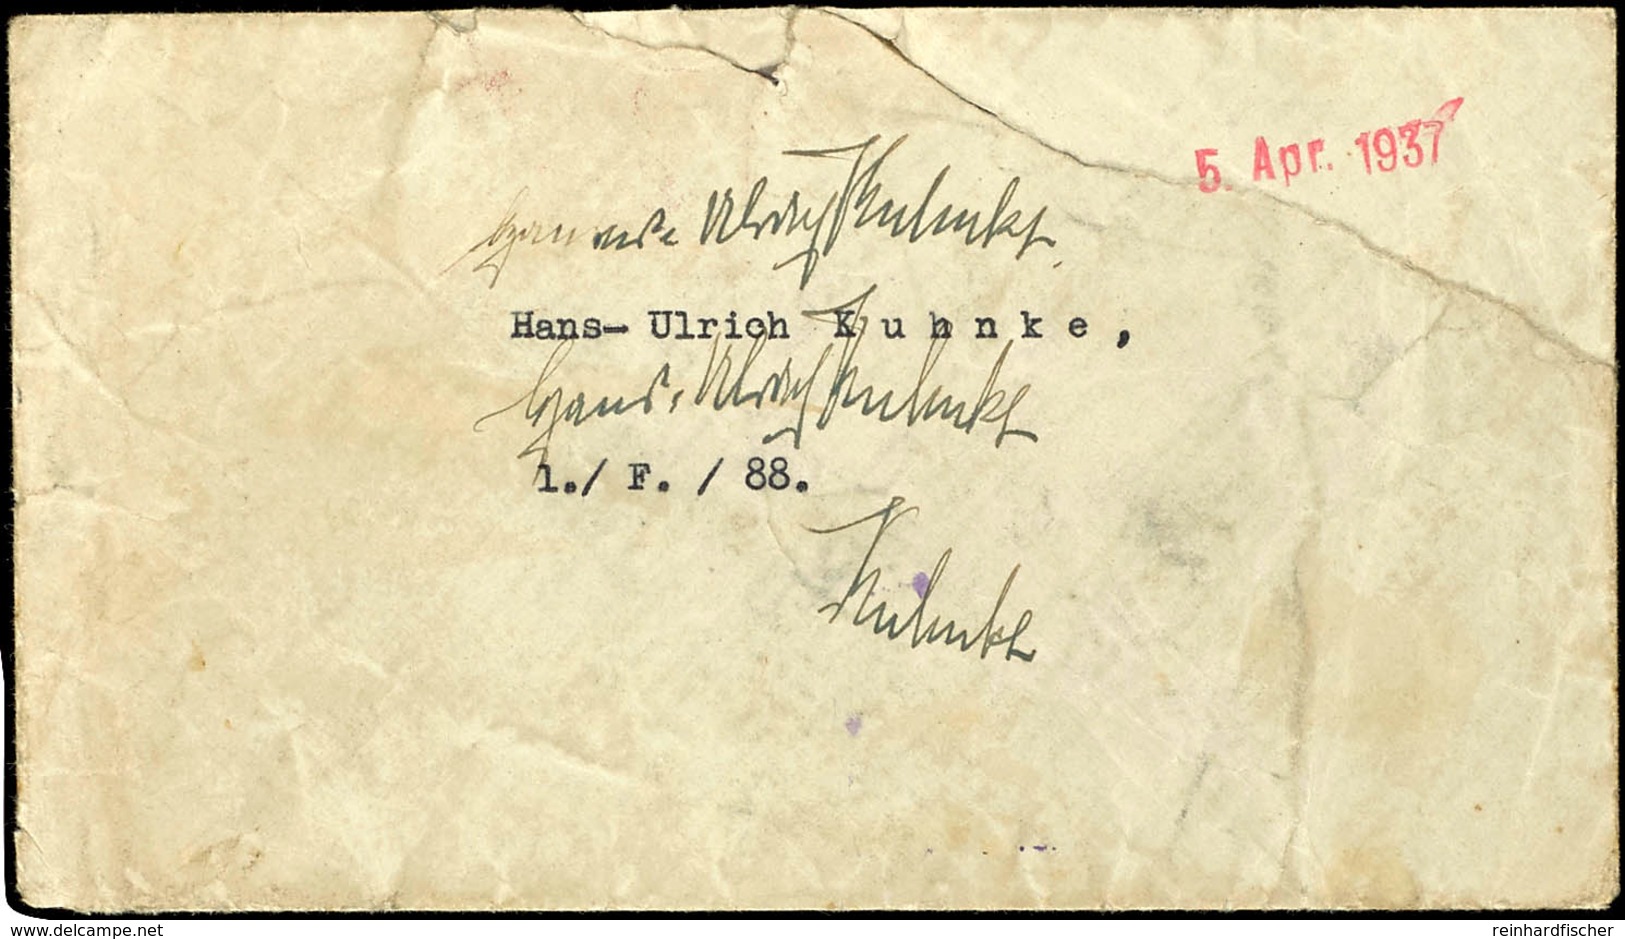 5. Apr. 1937
Hans-Ulrich Kuhnke.
Hans- Ulrich Kuhnke,
Hans-Ulrich Kuhnke
1./ F. / 88.
Kuhnke
delcampe.net
reinhardfischer